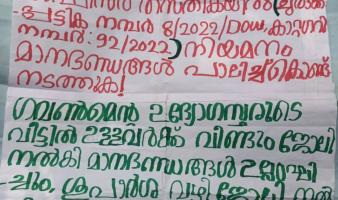 തസ്തികയിൽ
പട്ടിക നമ്പർ 8/2022/DOW, കാറ്റഗറി
നമ്പർ: 92/2022) നിയമനം
മാനദണ്ഡങ്ങൾ പാലിച്ച്കൊണ്ട്
നടത്തുക!
ഗവൺമെന്റ് ഉദ്യോഗസ്ഥരുടെ
വീട്ടിൽ ഉള്ളവർക്ക് വീണ്ടും ജോലി
നൽകി മാനദണ്ഡങ്ങൾ ഉല്ലംഘി
-ച്ചും, ശുപാർശ വഴി ജോലി നൽ